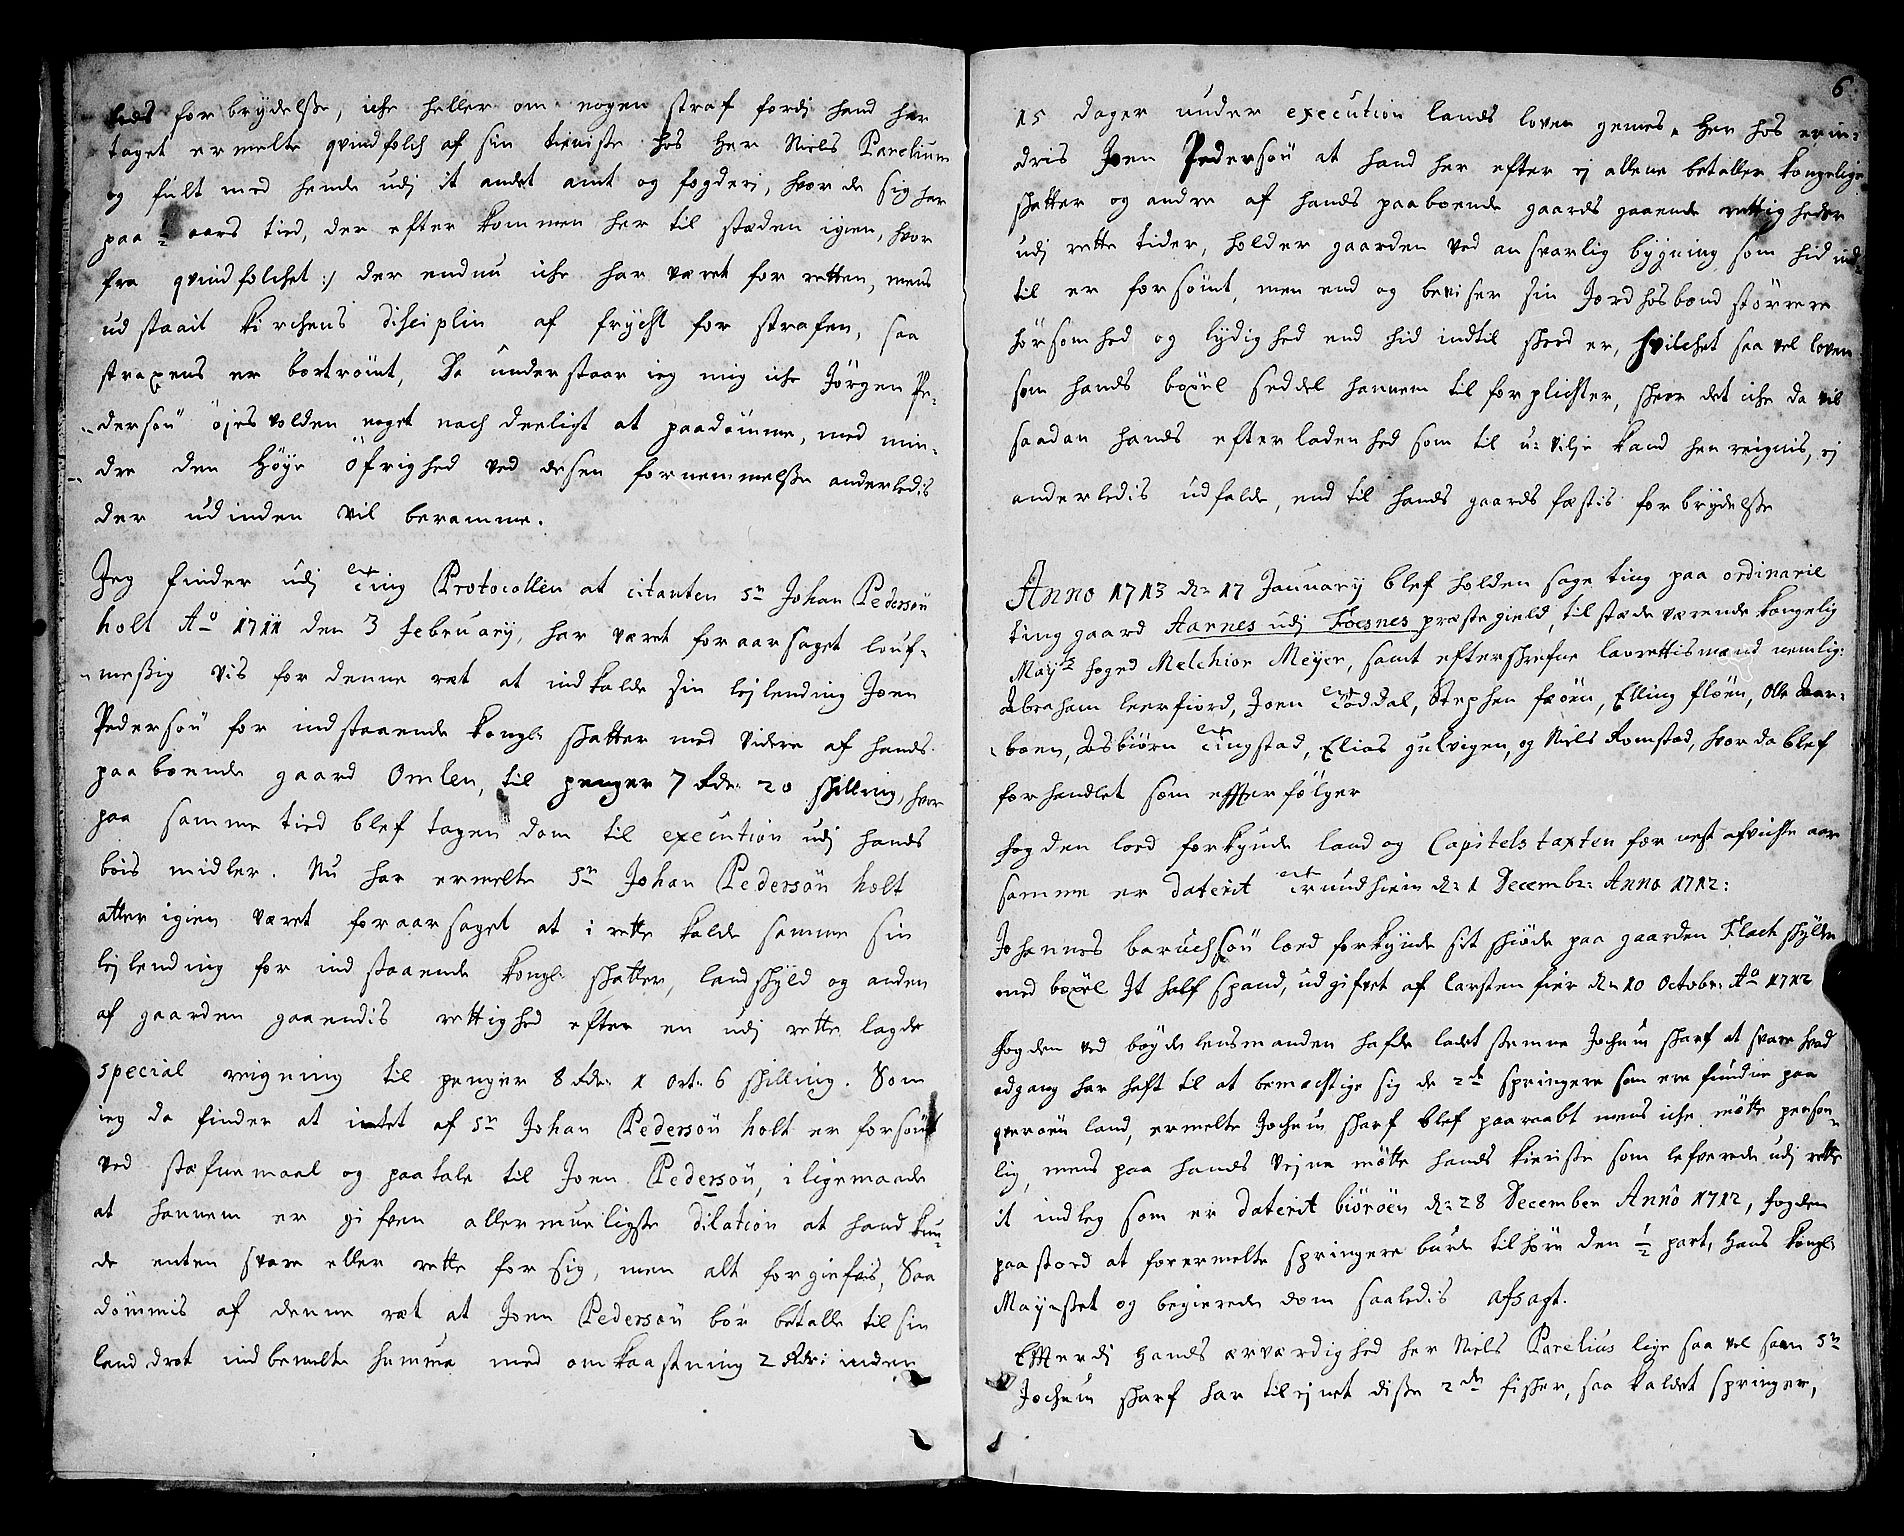 feds forbrydelsse, iche heller om nogen straf fordj hand har
taget ermelte qvindfolch af sin tieniste hos Her Niels Parelium
og fult med hende udj it andet amt og fogderi, hvor de sig har
paa ½ aars tied, der efter kommen her til stæden igien, hvor
fra qvindfolchet :/ der endnu iche har været for retten, mens
udstaait kirchens disciplin af frycht for strafen, saa
straxens er bortrömt, Da understaar ieg mig iche Jörgen Pe-
dersön öjesvolden noget nachdeeligt at paadömme, med min-
dre den Höye Öfrighed ved desen fornemmelsse anderledis
der udinden vil beramme.
Jeg finder udj Ting Protocollen at citanten Sr Johan Pedersön
holt Ao 1711 den 3 February, har været foraarsaget louf-
messig vis for denne ræt at indkalde sin lejlending Joen
Pedersön for indstaaende kongl: skatter med videre af hands
paaboende gaard Omlen, til penger 7 Rdr: 20 skilling, hvor
paa samme tied blef tagen dom til execution udj hands
bois midler. Nu har ermelte Sr Johan Pedersön holt
atter igien været foraarsaget at i rette kalde samme sin
lejlending for indstaaende kongl: skatter, landskyld og anden
af gaarden gaaendis rettighed efter en udj rette lagde
special reigning til penger 8 Rdr: 1 ort: 6 skilling. Som
ieg da finder at intet af Sr Johan Pedersön holt er forsömt
ved stæfnemaal og paatale til Joen Pedersön, i ligemaade
at hannem er gifven allermueligste dilation at hand kun-
de enten svare eller rette for sig, men alt forgiefvis, Saa
dömmis af denne ræt at Joen Pedersön bör betalle til sin
landdrot indbemelte summa med omkaastning 2 Rdr: inden
6
15 dager under execution lands loven gemes. Her hos erin-
dris Joen Pedersön at hand her efter ej allene betaller kongelige
skatter og andre af hands paaboende gaards gaaende rettigheder
udj rette tider, holder gaarden ved ansvarlig bygning som hid ind-
til er forsömt, men end og beviser sin Jordhosbond störrere
hörsomhed og lydighed end hid indtil skeed er, hvilchet saa vel loven
som hands böxel seddel hannem til forplichter, skeer det iche da vil
saadan hands efterladenhed som til u-vilje kand henreignis, ej
anderledis udfalde, end til hands gaards fæstis forbrydelsse
Anno 1713 d: 17 January blef holden sage ting paa ordinarie
tinggaard Aarnes udj Foesnes præstegield, til stæde værende kongelig
Mayts foged Melchior Meyer, samt efterskrefne laurettismænd nemlig:
Abraham leerfiord, Joen Töddal, Stephen faöen, Elling flöen, Olle Aar-
boen, Asbiörn Tingstad, Elias gulvigen, og Niels Romstad, hvor da blef
forhandlet som effterfölger
fogden lod forkynde land og Capitels taxten for nest afvichte aar
samme er daterit Trundhiem d: 1 Decembr: Anno 1712:
Johannes baruchsön loed forkynde sit skiöde paa gaarden Flach skylde
med böxel It half spand, udgifvet af Carsten fier d: 10 Octobr: Ao 1712
fogden ved böyde lensmanden hafde ladet stemne Jochum skarf at svare hvad
adgang har haft til at bemæchtige sig de 2de springere som ere fundne paa
qveröen land, ermelte Jochum skarf blef paaraabt mens iche mötte person-
lig, mens paa hands vejne mötte hands kieriste som lefverede udj rette
it indleg som er daterit biöröen d: 28 December Anno 1712, fogden
paastoed at forermelte springere burde tilhöre den ½ part, Hans kongl:
Mayestet og begierede dom saaledis afsagt.
Effterdj Hands ærværdighed her Niels Parelius lige saa vel som Sr
Jochum skarf har tilejnet disse 2de fisker, saa kaldet springer,